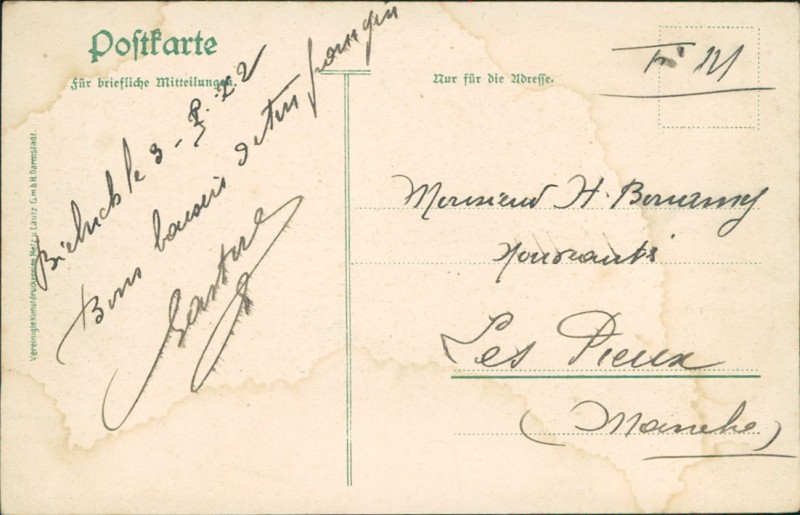 Postkarte
Für briefliche Mitteilungen.
Nur für die Adresse.
F. M
le 3-8-22
Bons baisers de ton françin
Gaston
Monsieur H. Bonamy
Les Pieux
(Manche)
Vereinigte Kunstdruckereien Metz u. Lautz G.m.b.H. Darmstadt.